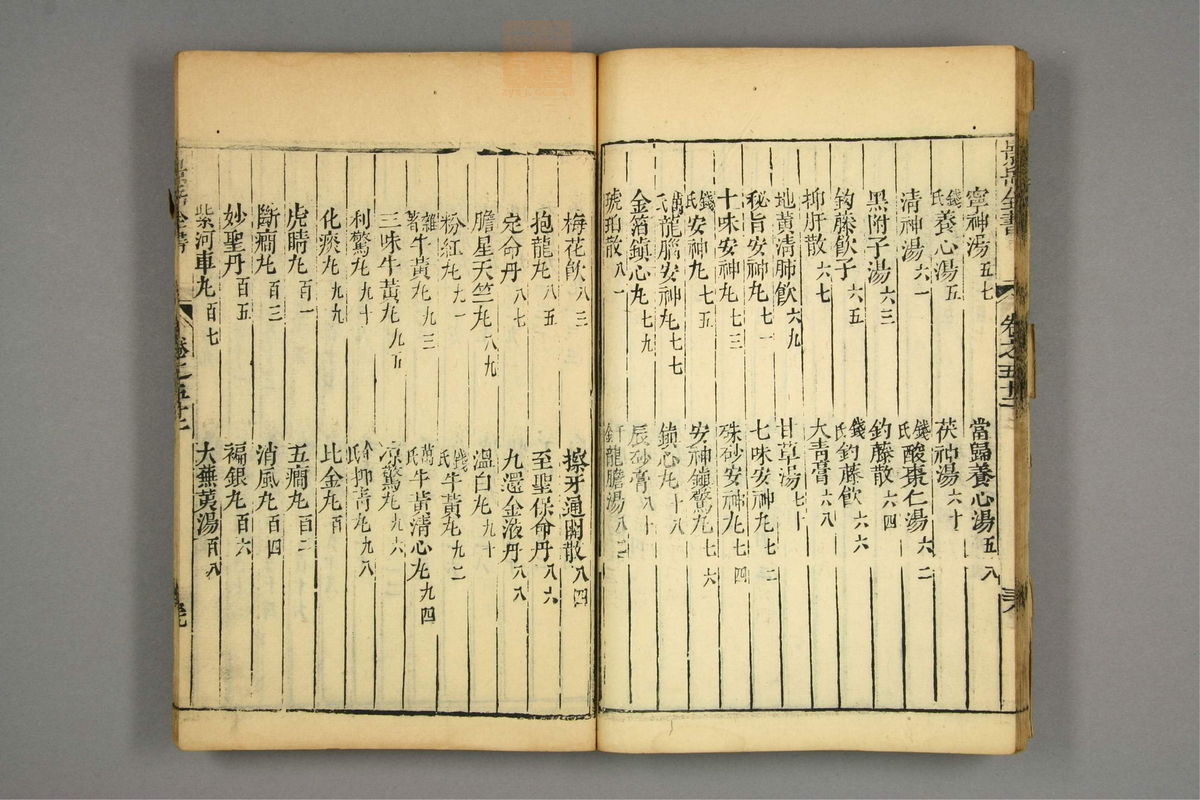 景岳全書
寧神湯五七 當歸養心湯五八
錢氏養心湯五 茯神湯六十
清神湯六一 錢氏酸棗仁湯六二
黑附子湯六三 釣藤散六四
釣藤飲子六五 錢氏釣藤飲六六
抑肝散六七 大青膏六八
地黃清肺飲六九 甘草湯七十
秘旨安神丸七一 七味安神丸七二
十味安神丸七三 硃砂安神丸七四
錢氏安神丸七五 安神鎮驚丸七六
萬氏龍腦安神丸七七 鎮心丸七八
金箔鎮心丸七九 辰砂膏八十
琥珀散八一 龍膽湯八二
梅花飲八三 擦牙通關散八四
抱龍丸八五 至聖保命丹八六
定命丹八七 九還金液丹八八
膽星天竺丸八九 溫白丸九十
粉紅丸九一 錢氏牛黃丸九二
牛黃丸九三 萬氏牛黃清心丸九四
三味牛黃丸九五 凉驚丸九六
利驚丸九 抑青丸九八
化痰丸九九 比金丸百
虎睛丸百一 五癎丸百二
斷癎丸百三 消風丸百四
妙聖丹百五 褊銀丸百六
紫河車丸百七 大蕪荑湯百八